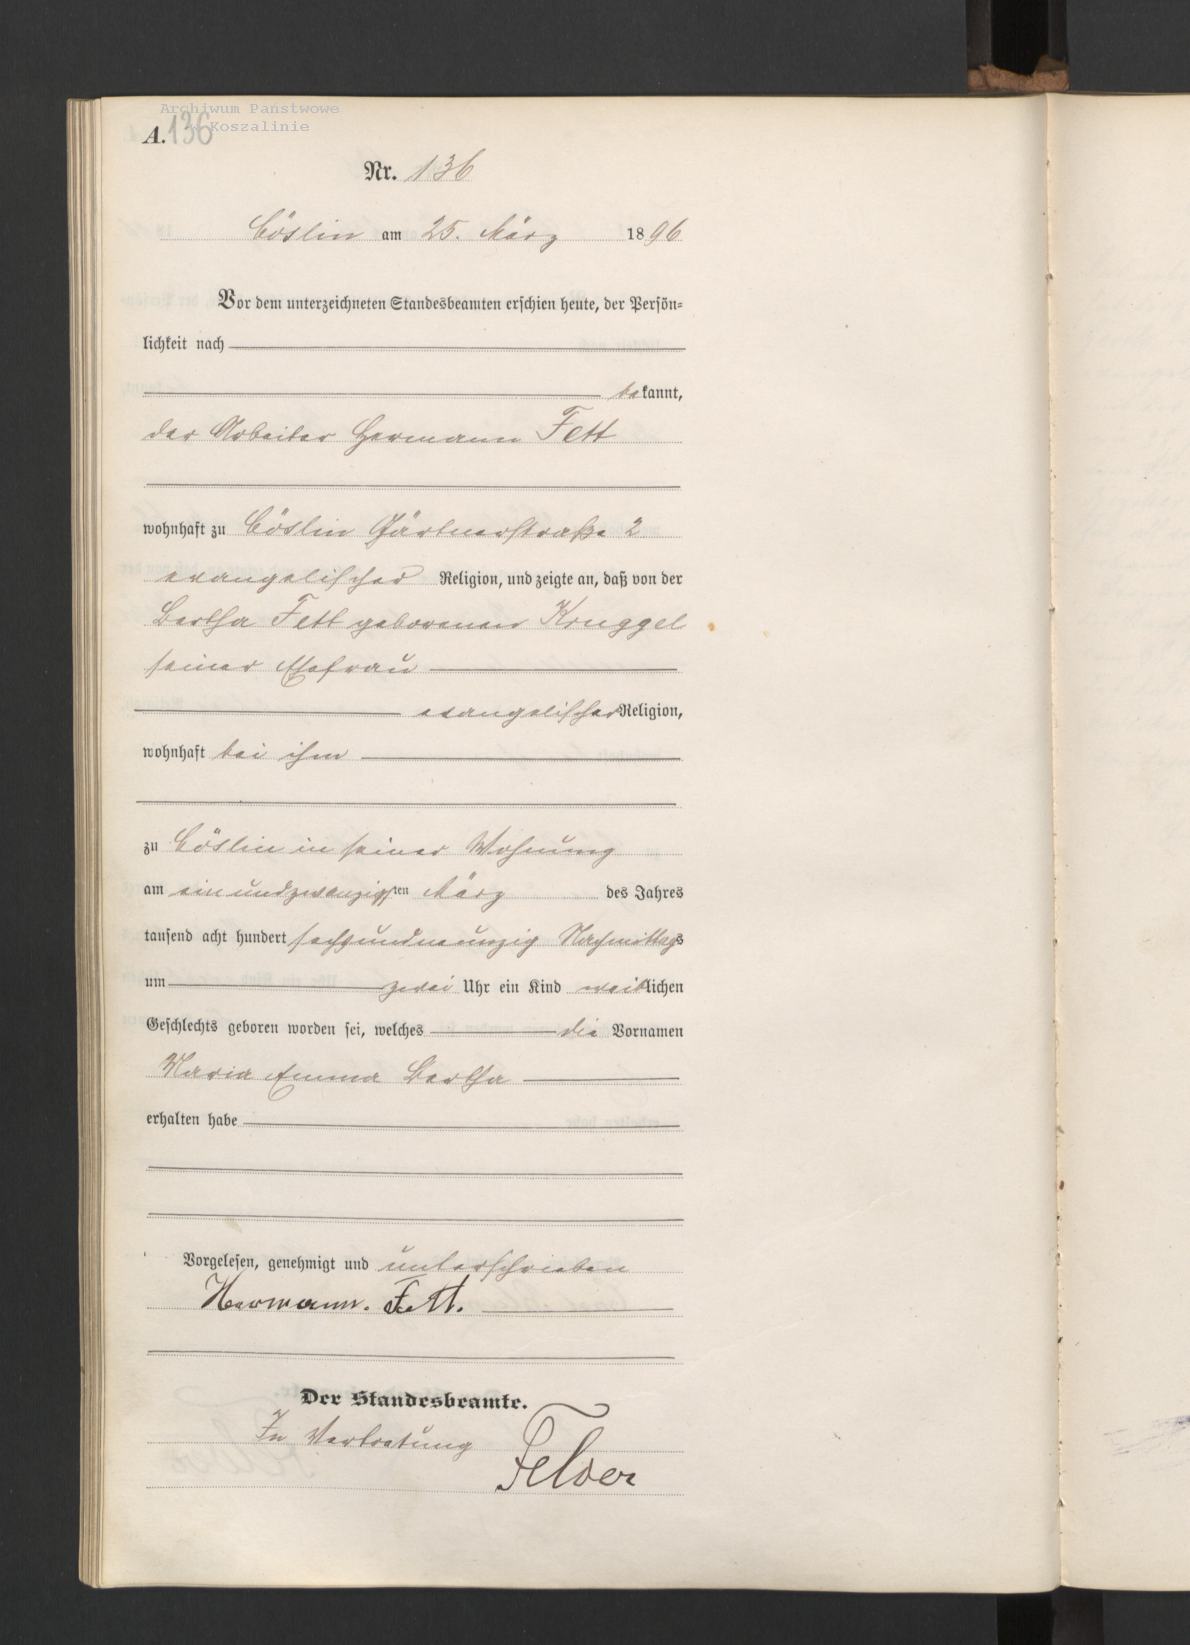 Archiwum Państwowe
w Koszalinie
A. 136
Nr. 136
Cöslin am 25. März 1896
Vor dem unterzeichneten Standesbeamten erschien heute, der Persön-
lichkeit nach
bekannt,
der Arbeiter Hermann Fett
wohnhaft zu Cöslin Gärtnerstraße 2
evangelischer Religion, und zeigte an, daß von der
Bertha Fett geborenen Kruggel
seiner Ehefrau
evangelischer Religion,
wohnhaft bei ihm
zu Cöslin in seiner Wohnung
am einundzwanzigsten März des Jahres
tausend acht hundert sechsundneunzig Nachmittags
um zwei Uhr ein Kind weiblichen
Geschlechts geboren worden sei, welches die Vornamen
Maria Emma Bertha
erhalten habe
Vorgelesen, genehmigt und unterschrieben
Hermann. Fett.
Der Standesbeamte.
In Vertretung